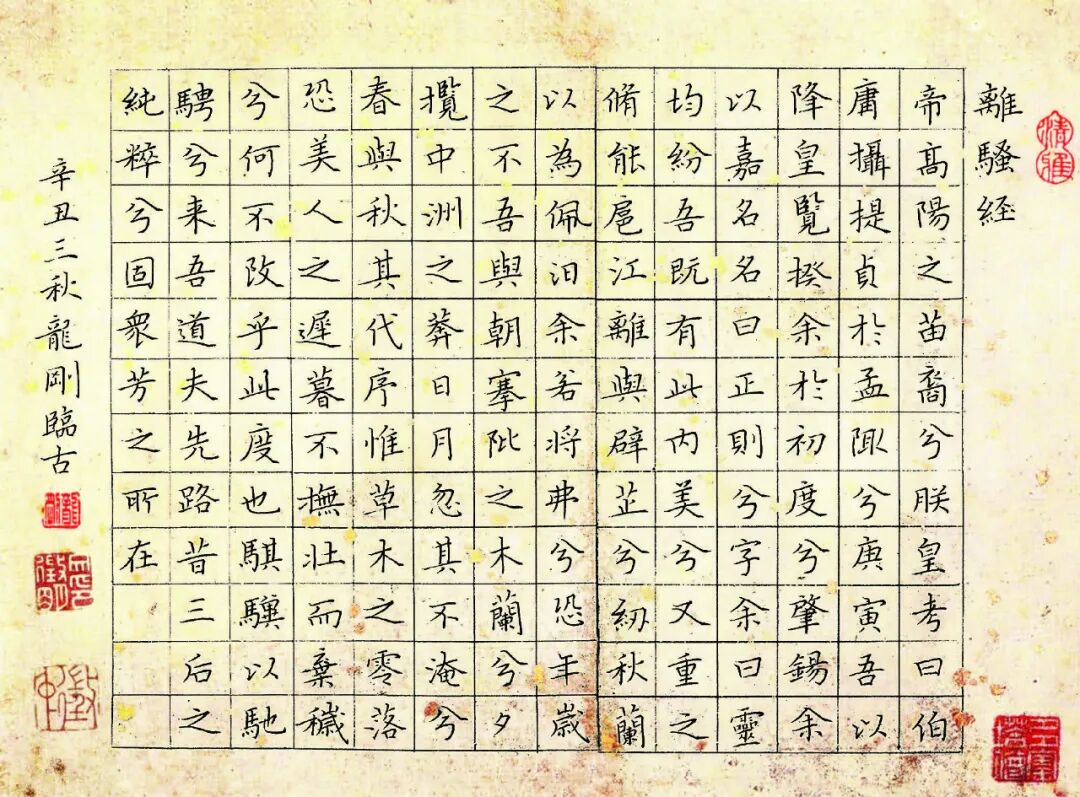 離騷経
帝高陽之苗裔兮朕皇考曰伯
庸攝提貞於孟陬兮庚寅吾以
降皇覽揆余於初度兮肇錫余
以嘉名名曰正則兮字余曰靈
均紛吾既有此內美兮又重之
脩能扈江離與辟芷兮紉秋蘭
以為佩汩余若將弗兮恐年歲
之不吾與朝搴阰之木蘭兮夕
攬中洲之莽日月忽其不淹兮
春與秋其代序惟草木之零落
恐美人之遲暮不撫壯而棄穢
兮何不改乎此度也騏驥以馳
騁兮来吾道夫先路昔三后之
純粹兮固衆芳之所在
辛丑三秋龍剛臨古